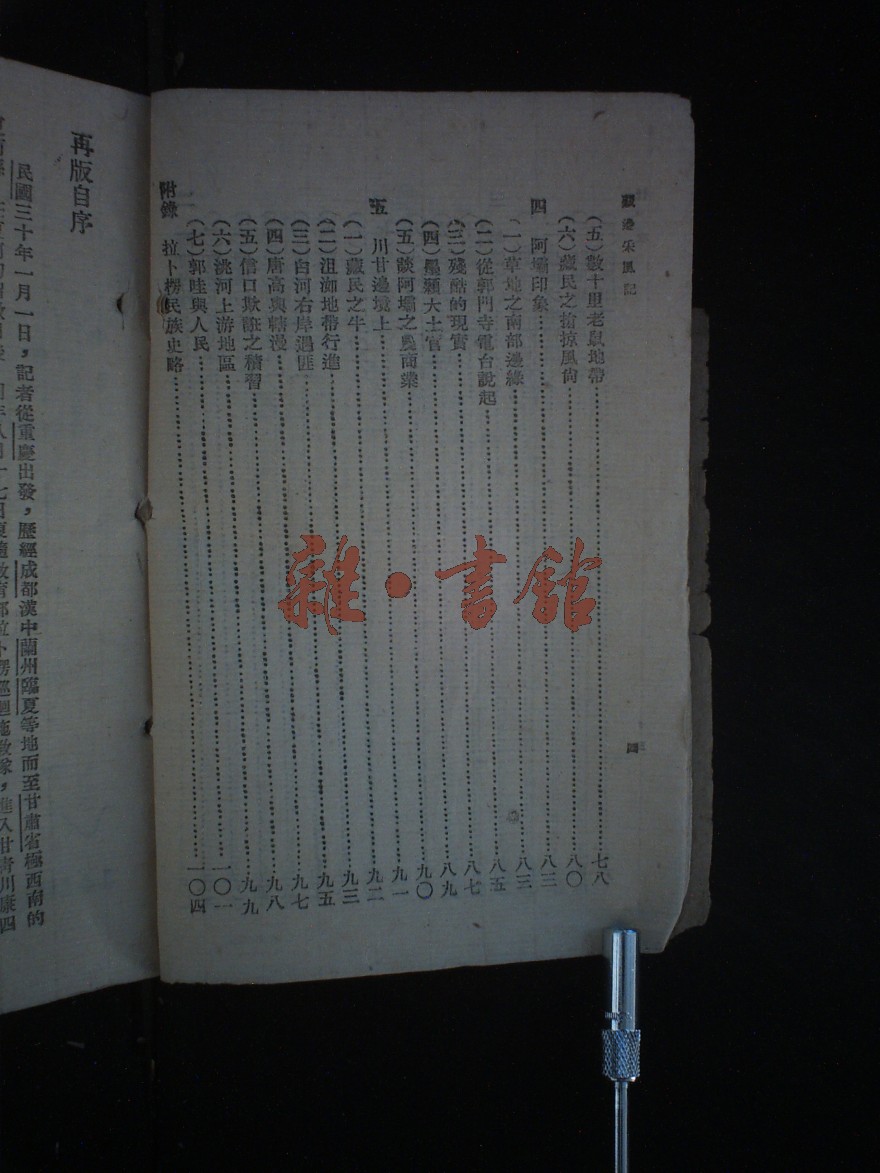 藏邊采風記
四
(五)數十里老鼠地帶……七八
(六)藏民之搶掠風尙……八〇
四 阿壩印象……八三
(一)草地之南部邊緣……八三
(二)從郭門寺電台說起……八五
(三)殘酷的現實……八七
(四)墨顙大土官……八九
(五)談阿壩之奧商業……九〇
五 川甘邊境上……九一
(一)藏民之牛……九二
(二)沮洳地帶行進……九三
(三)白河右岸遇匪……九五
(四)唐高與轄漫……九七
(五)信口欺誑之積習……九八
(六)洮河上游地區……九九
(七)郭哇與人民……一〇一
附錄 拉卜楞民族史略……一〇四
再版自序
民國三十年一月一日,記者從重慶出發,歷經成都漢中蘭州臨夏等地而至甘肅省極西南的
教育部拉卜楞巡迴施教隊,進入甘靑川康四
雜·書館